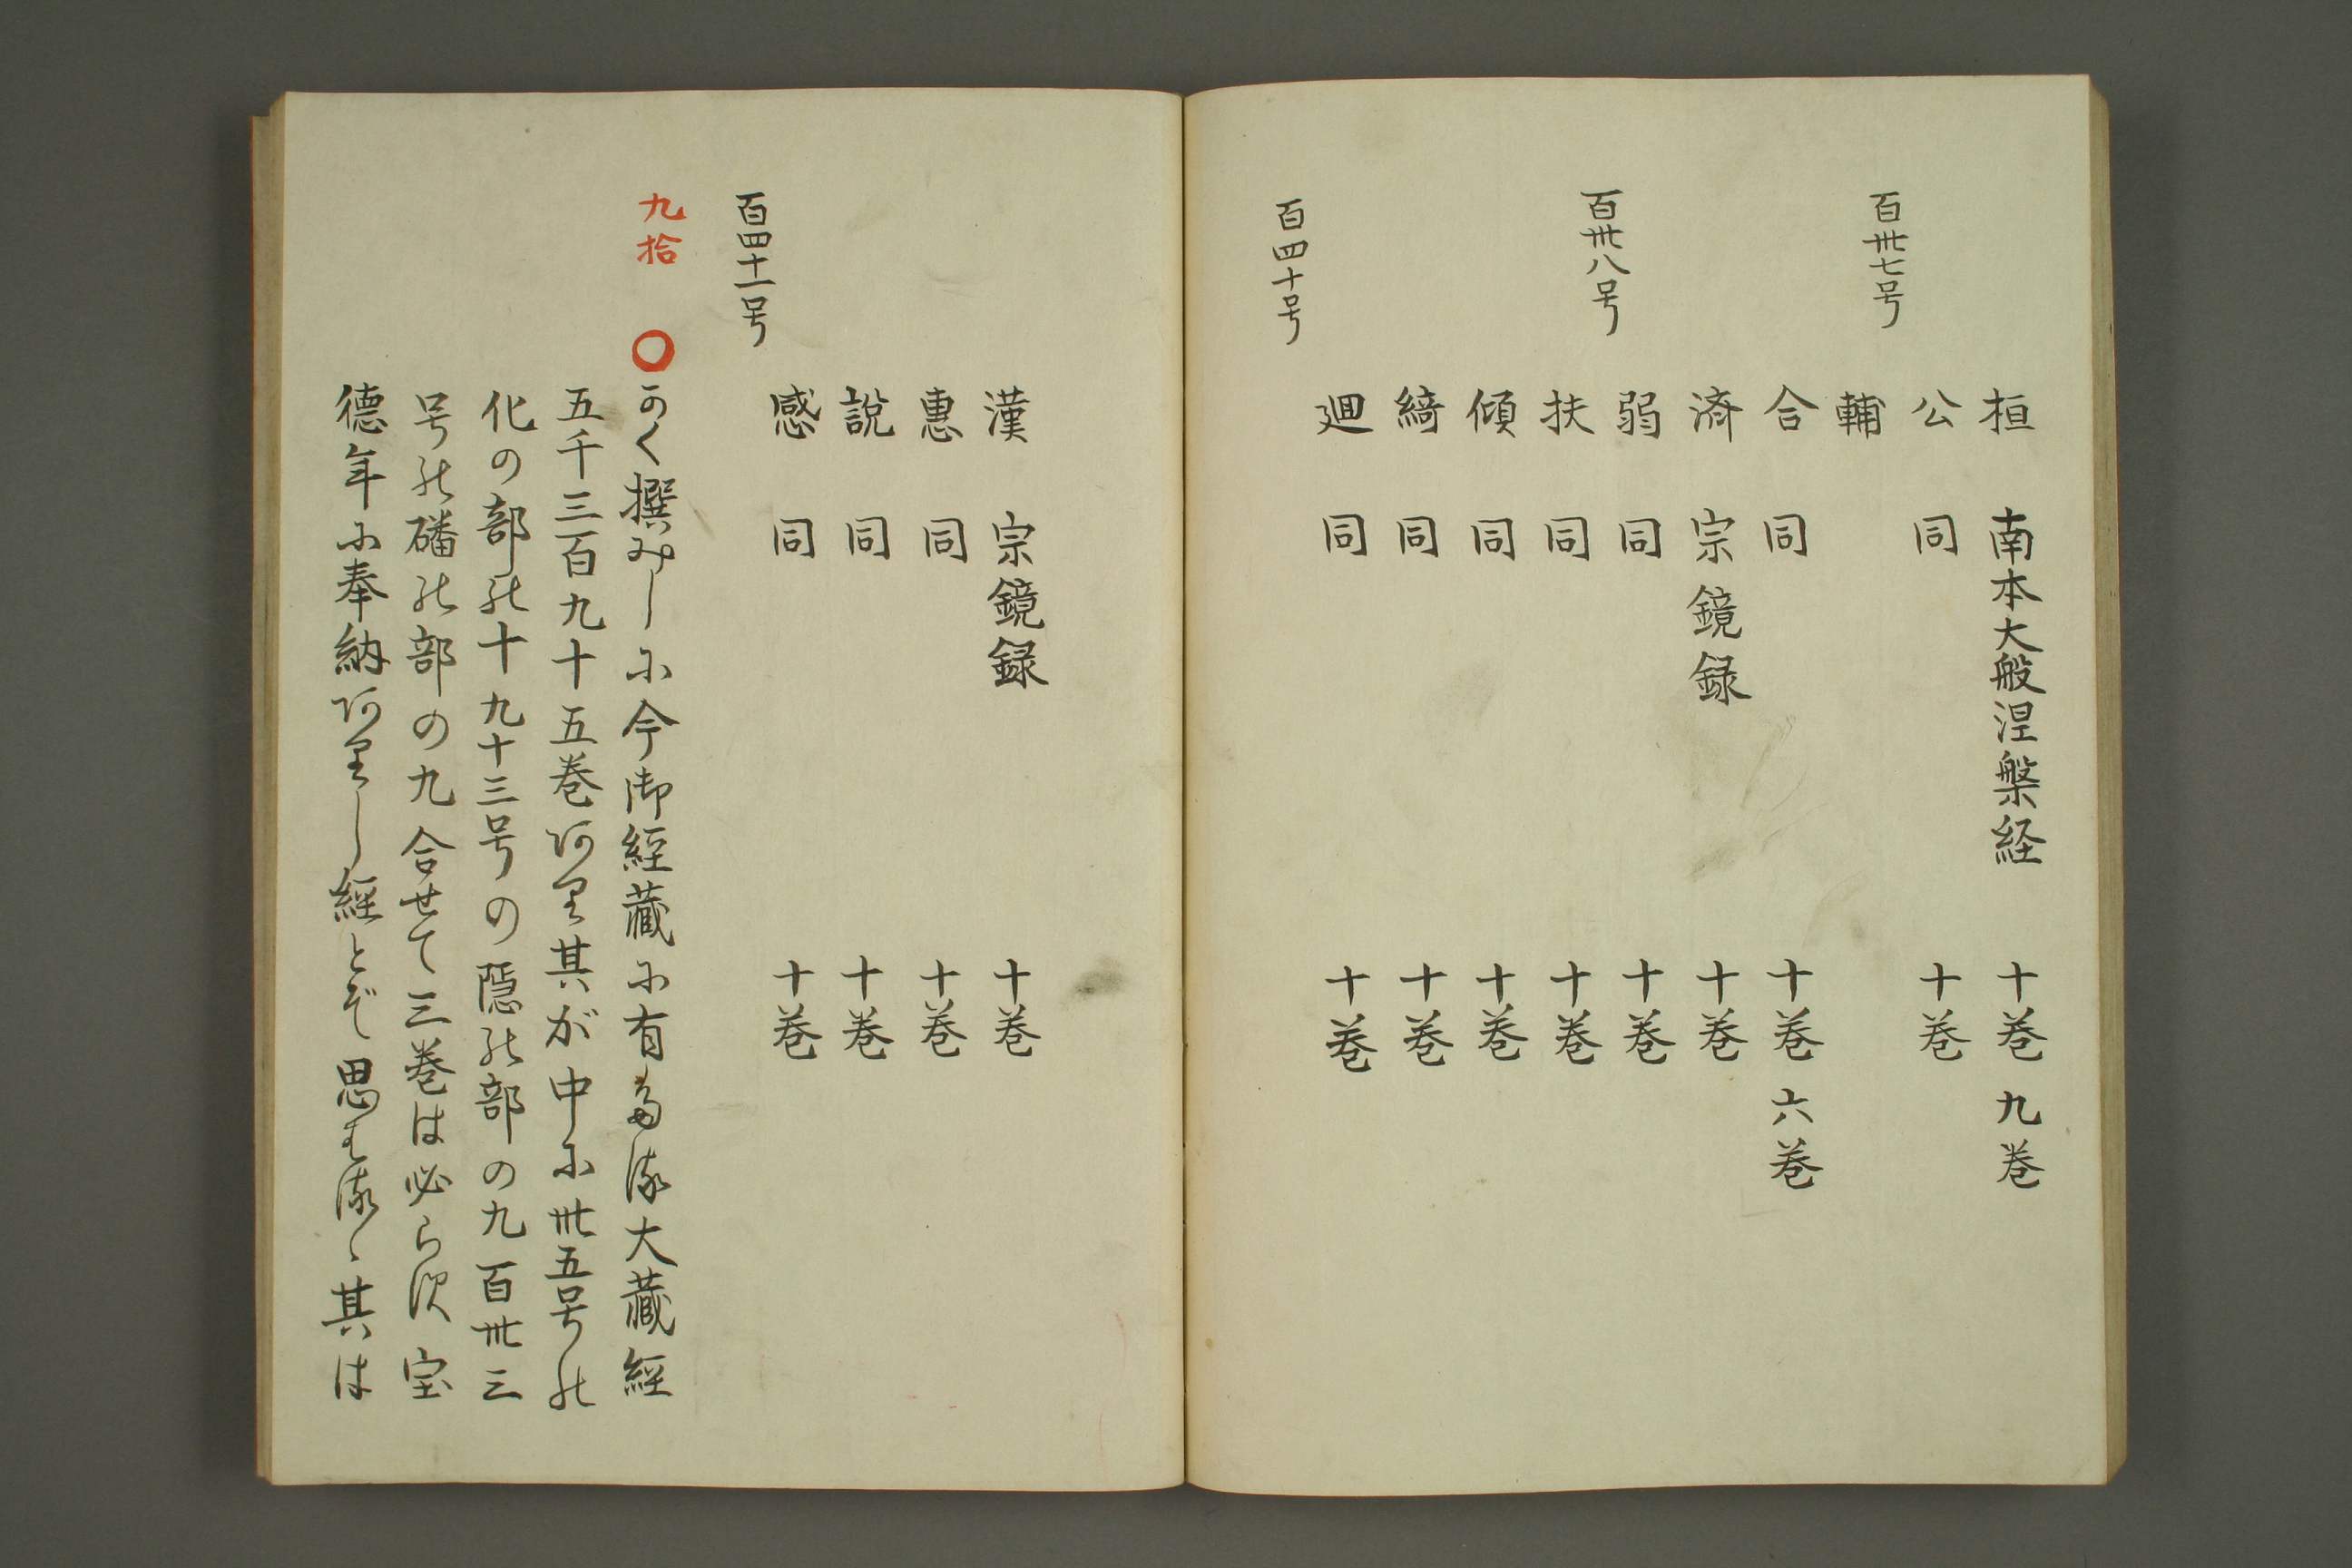 桓 南本大般涅槃経 十巻 九巻
百卅七号
公 同 十巻
輔
合 同 十巻 六巻
済 宗鏡録 十巻
百卅八号
弱 同 十巻
扶 同 十巻
傾 同 十巻
綺 同 十巻
廻 同 十巻
百四十号
漢 宗鏡録 十巻
惠 同 十巻
說 同 十巻
感 同 十巻
百四十一号
九拾 〇かく撰みしに今御經藏に有る大藏經
五千三百九十五巻阿里其が中に卅五号乃
化の部乃十九十三号の隠乃部の九百卅三
号乃磻乃部の九合せて三巻は必らす宝
德年に奉納阿里し經とぞ思はるゝ其は